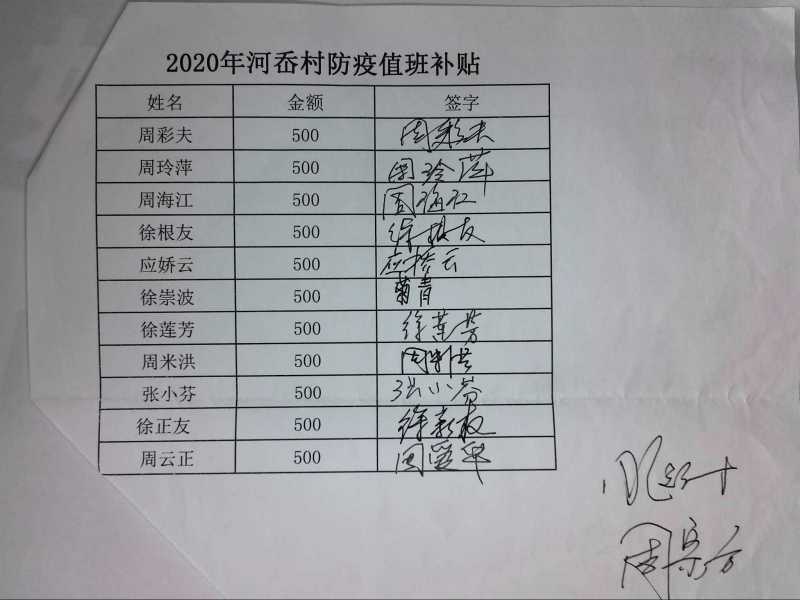 2020年河岙村防疫值班补贴
姓名 金额 签字
周彩夫 500 周彩夫
周玲萍 500 周玲萍
周海江 500 周海江
徐根友 500 徐根友
应娇云 500 应娇云
徐崇波 500 菊青
徐莲芳 500 徐莲芳
周米洪 500
张小芬 500 张小芬
徐正友 500
周云正 500 周爱华